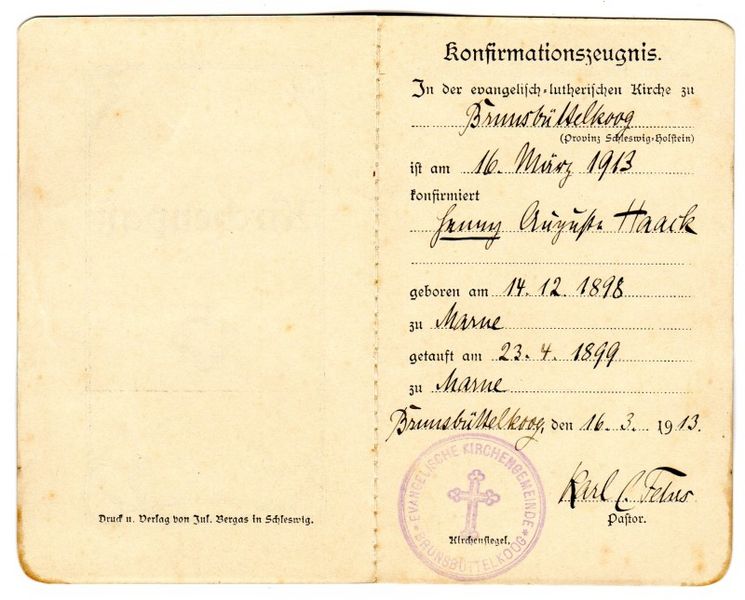 Druck u. Verlag von Jul. Bergas in Schleswig.
Konfirmationszeugnis.
In der evangelisch-lutherischen Kirche zu
Brunsbüttelkoog
(Provinz Schleswig-Holstein)
ist am 16. März 1913
konfirmiert
Henny Auguste Haack
geboren am 14. 12. 1898
zu Marne
getauft am 23. 4. 1899
zu Marne
Brunsbüttelkoog, den 16. 3. 1913.
EVANGELISCHE KIRCHENGEMEINDE
* BRUNSBÜTTELKOOG *
Kirchensiegel.
Karl C.
Pastor.